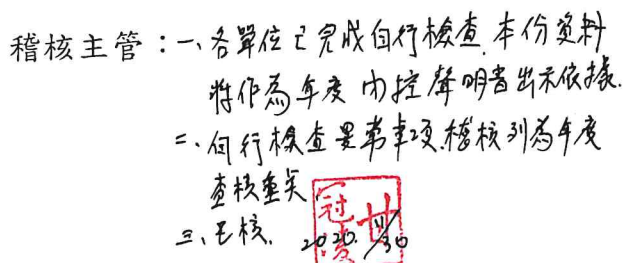 稽核主管：一、各單位已完成自行檢查,本份資料
將作為年度內控聲明書出示依據.
二、自行檢查異常事項,稽核列為年度
查核重點
三、已核. 2020.11/30